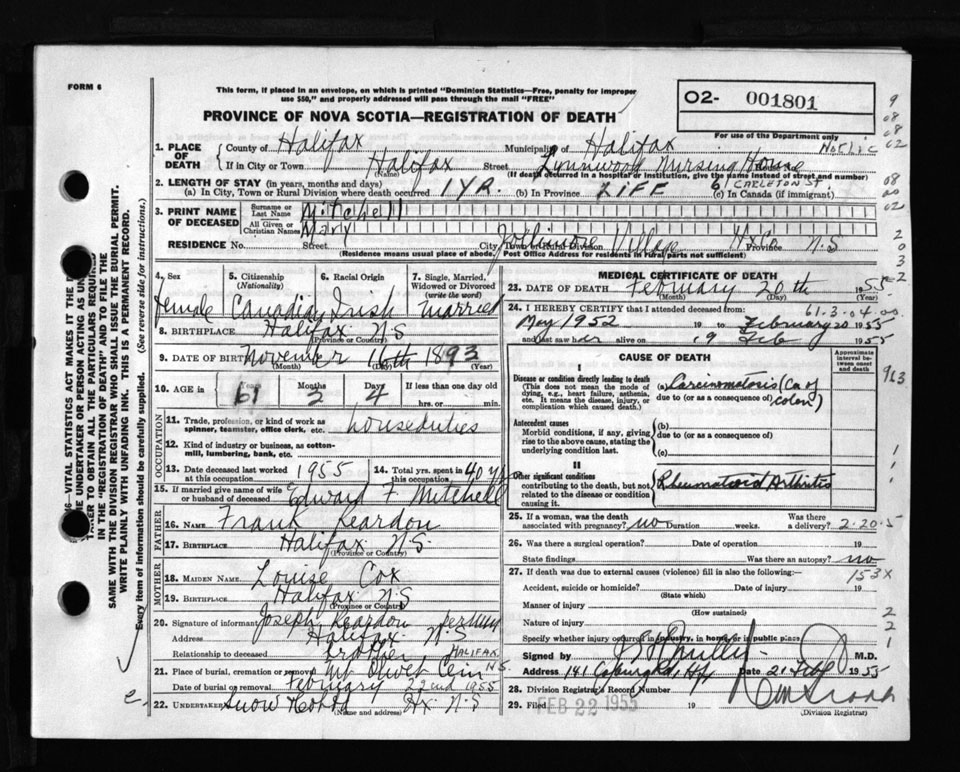 FORM 6
This form, if placed in an envelope, on which is printed "Dominion Statistics—Free, penalty for improper
use $50," and properly addressed will pass through the mail "FREE"
PROVINCE OF NOVA SCOTIA—REGISTRATION OF DEATH
O2- 001801
For use of the Department only
1. PLACE OF DEATH
County of Halifax Municipality of Halifax
If in City or Town Halifax Street Lynnwood Nursing House
(Name) (If death occurred in a hospital or institution, give the name instead of street and number)
61 CARLETON ST.
2. LENGTH OF STAY (in years, months and days)
(a) In City, Town or Rural Division where death occurred 1 YR. (b) In Province LIFE (c) In Canada (if immigrant)
3. PRINT NAME OF DECEASED
Surname or Last Name Mitchell
All Given or Christian Names Mary
RESIDENCE No. Street Jollimore Village Hfx. N.S
City, Town or Rural Division Province
(Residence means usual place of abode. Post Office Address for residents in rural parts not sufficient)
4. Sex female
5. Citizenship (Nationality) Canadian
6. Racial Origin Irish
7. Single, Married, Widowed or Divorced (write the word) married
8. BIRTHPLACE Halifax N.S
(Province or Country)
9. DATE OF BIRTH November 16th 1893
(Month) (Day) (Year)
10. AGE in Years 61 Months 2 Days 4 If less than one day old
hrs. or min.
OCCUPATION
11. Trade, profession, or kind of work as spinner, teamster, office clerk, etc. houseduties
12. Kind of industry or business, as cotton-mill, lumbering, bank, etc.
13. Date deceased last worked at this occupation 1955 14. Total yrs. spent in this occupation 40 yrs
15. If married give name of wife or husband of deceased Edward F Mitchell
FATHER
16. NAME Frank Reardon
17. BIRTHPLACE Halifax N.S
(Province or Country)
MOTHER
18. MAIDEN NAME Louise Cox
19. BIRTHPLACE Halifax N.S
(Province or Country)
20. Signature of informant Joseph Reardon
Address Halifax N.S
Relationship to deceased brother
21. Place of burial, cremation or removal Mt Olivet Cem HALIFAX N.S.
Date of burial or removal February 22nd 1955
22. UNDERTAKER Snow Hx. N.S
(Name and address)
MEDICAL CERTIFICATE OF DEATH
23. DATE OF DEATH February 20th 1955
(Month) (Day) (Year)
24. I HEREBY CERTIFY that I attended deceased from: 61.3.04.00
May 1952 19 to February 20 1955
and last saw her alive on 19 Feb 1955
CAUSE OF DEATH
Approximate interval between onset and death
I
Disease or condition directly leading to death
(This does not mean the mode of dying, e.g., heart failure, asthenia, etc. It means the disease, injury, or complication which caused death.)
(a) Carcinomatosis (Ca of colon)
due to (or as a consequence of)
Antecedent causes
Morbid conditions, if any, giving rise to the above cause, stating the underlying condition last.
(b)
due to (or as a consequence of)
(c)
II
Other significant conditions
contributing to the death, but not related to the disease or condition causing it.
Rheumatoid Arthritis
25. If a woman, was the death associated with pregnancy? no Duration weeks. Was there a delivery? 2-20-5
26. Was there a surgical operation? Date of operation 19
State findings Was there an autopsy? no
27. If death was due to external causes (violence) fill in also the following:— 153X
Accident, suicide or homicide? Date of injury 19
(State which)
Manner of injury
(How sustained)
Nature of injury
Specify whether injury occurred in industry, in home, or in public place
Signed by M.D.
Address 141 Hfx Date 21 Feb 1955
28. Division Registrar's Record Number
29. Filed FEB 22 1955 19
(Division Registrar)
SAME WITH THE DIVISION REGISTRAR WHO SHALL ISSUE THE BURIAL PERMIT.
WRITE PLAINLY WITH UNFADING INK. THIS IS A PERMANENT RECORD.
Every item of information should be carefully supplied. (See reverse side for instructions.)